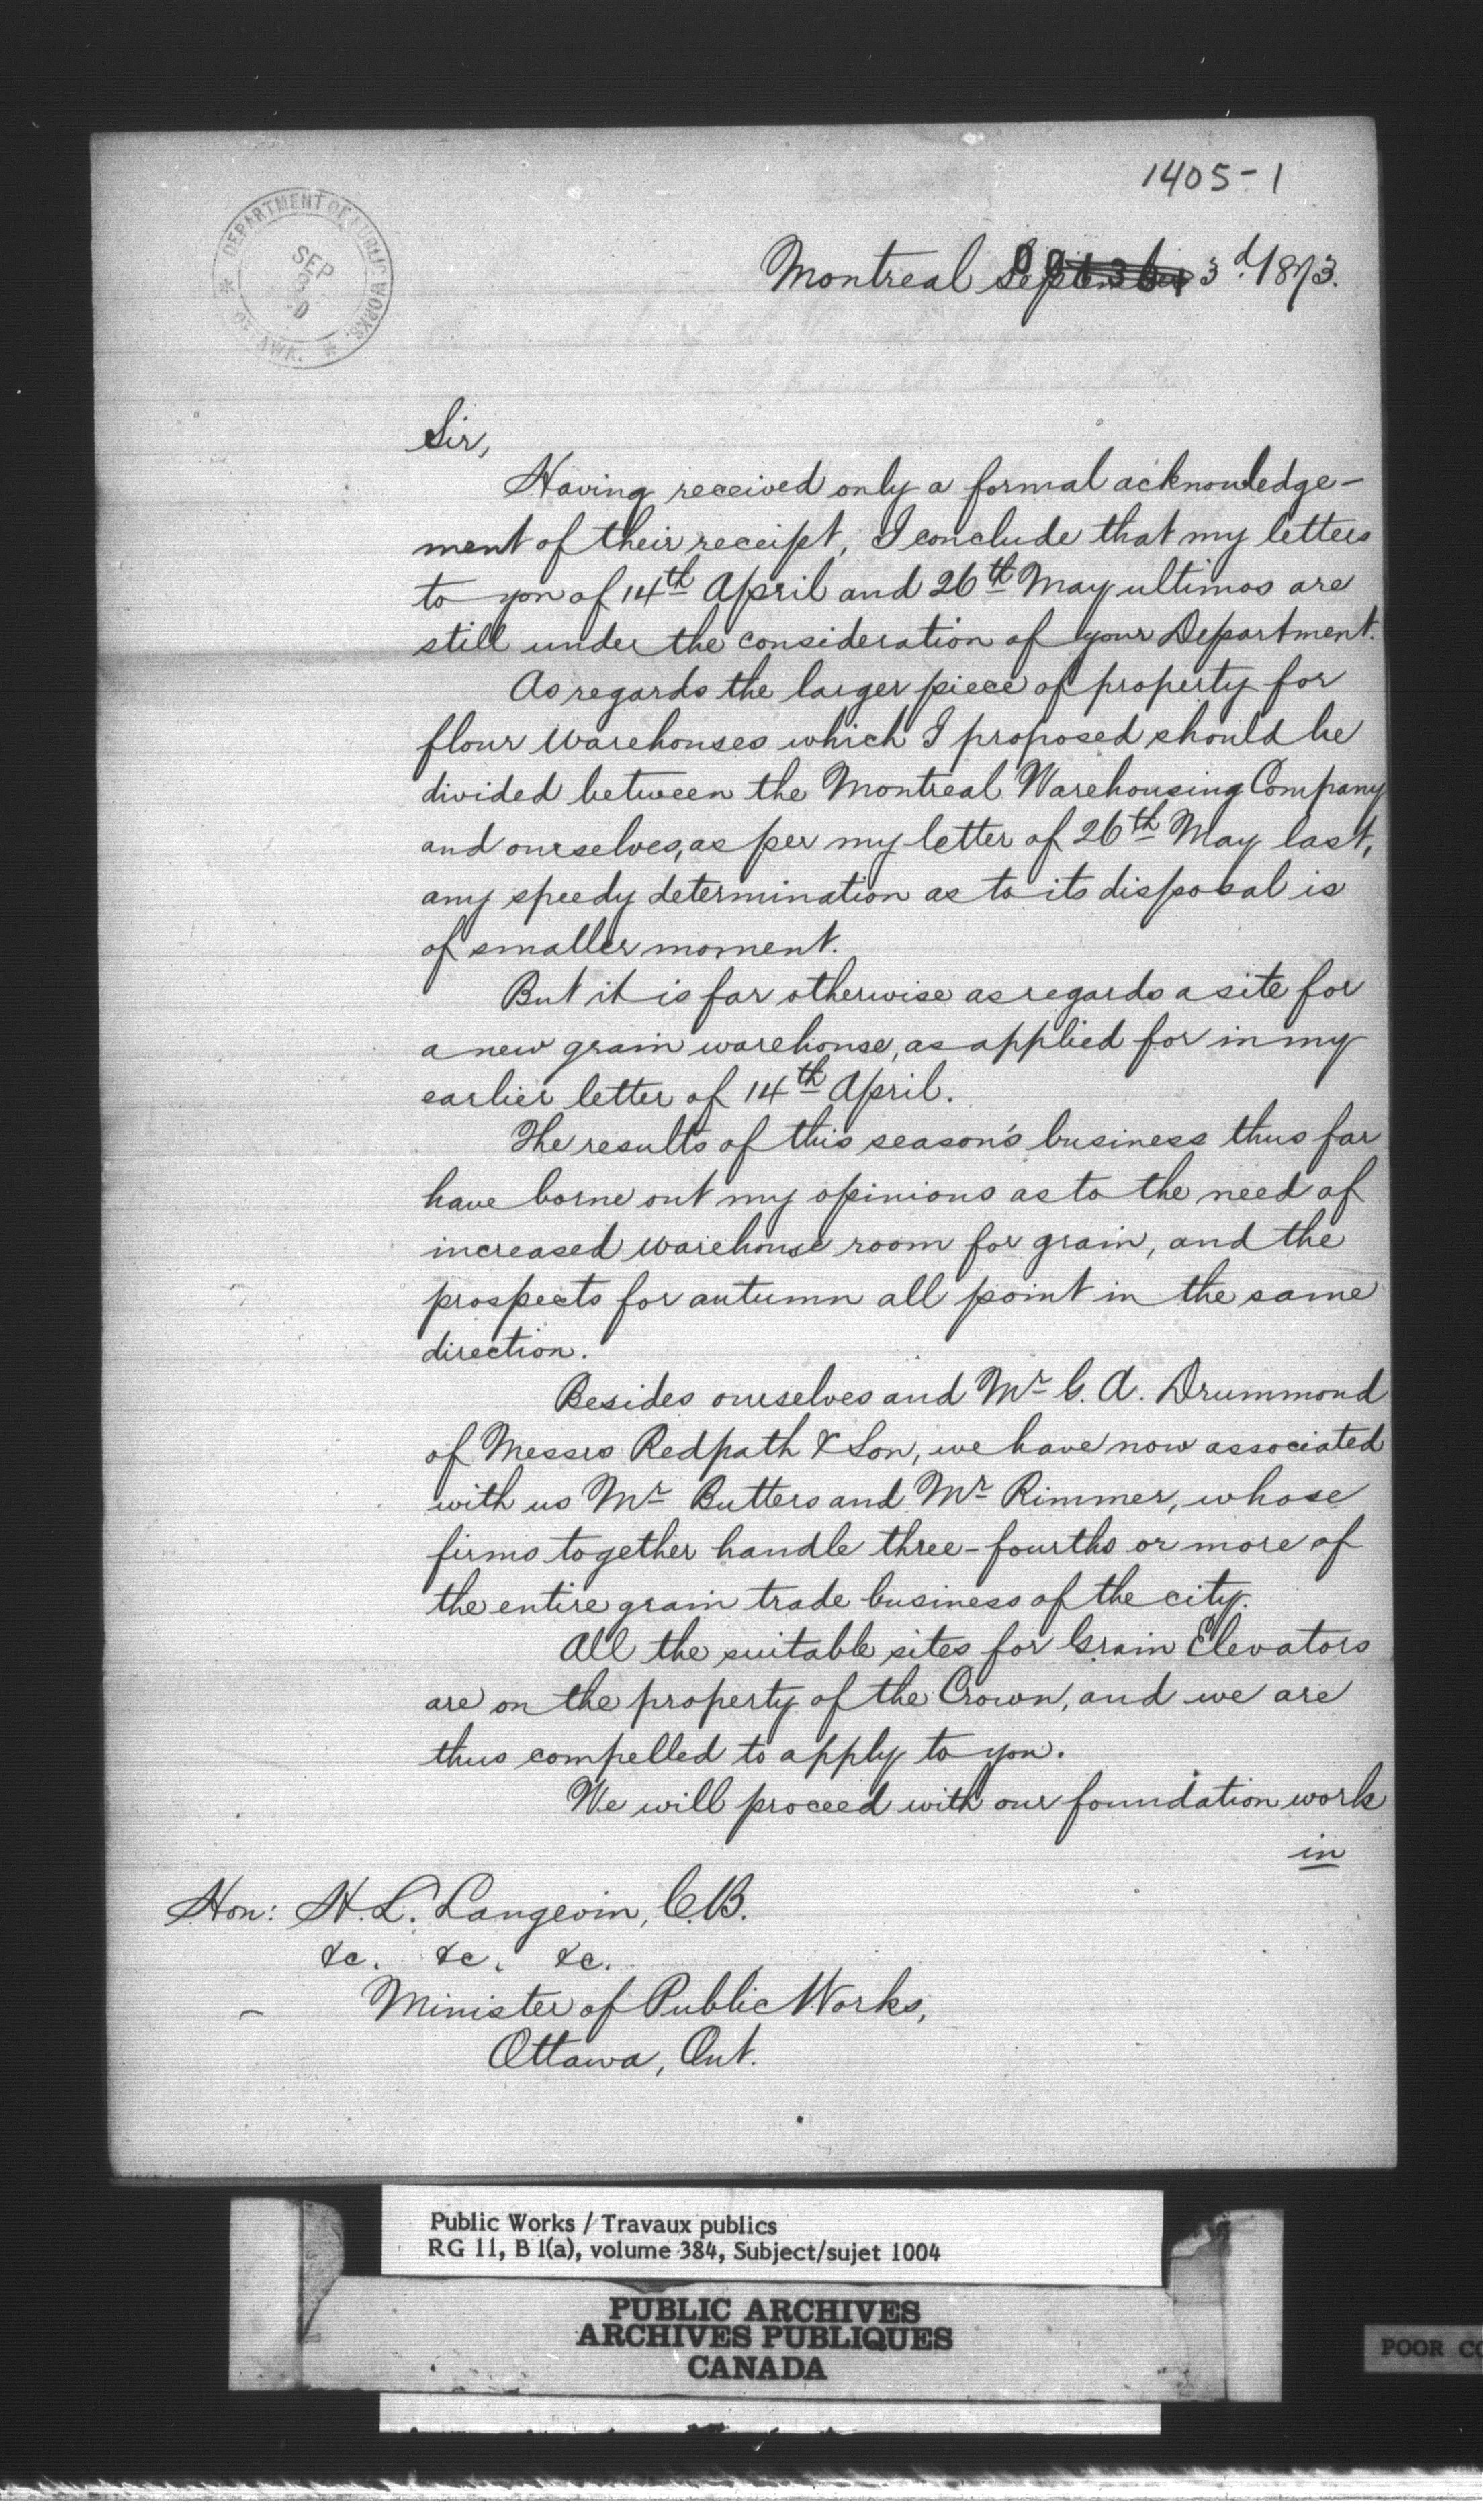 1405-1
DEPARTMENT OF PUBLIC WORKS
SEP
OTTAWA.
Montreal September 3d. 1873.
Sir,
Having received only a formal acknowledge-
ment of their receipt, I conclude that my letters
to you of 14th April and 26th May ultimos are
still under the consideration of your Department.
As regards the larger piece of property for
flour warehouses which I proposed should be
divided between the Montreal Warehousing Company
and ourselves, as per my letter of 26th May last,
any speedy determination as to its disposal is
of smaller moment.
But it is far otherwise as regards a site for
a new grain warehouse, as applied for in my
earlier letter of 14th April.
The results of this season's business thus far
have borne out my opinions as to the need of
increased warehouse room for grain, and the
prospects for autumn all point in the same
direction.
Besides ourselves and Mr G. A. Drummond
of Messrs Redpath & Son, we have now associated
with us Mr Butters and Mr Rimmer, whose
firms together handle three-fourths or more of
the entire grain trade business of the city.
All the suitable sites for Grain Elevators
are on the property of the Crown, and we are
thus compelled to apply to you.
We will proceed with our foundation work
in
Hon: H. L. Langevin, C.B.
&c. &c. &c.
Minister of Public Works,
Ottawa, Ont.
Public Works / Travaux publics
RG 11, B 1(a), volume 384, Subject/sujet 1004
PUBLIC ARCHIVES
ARCHIVES PUBLIQUES
CANADA
POOR CO